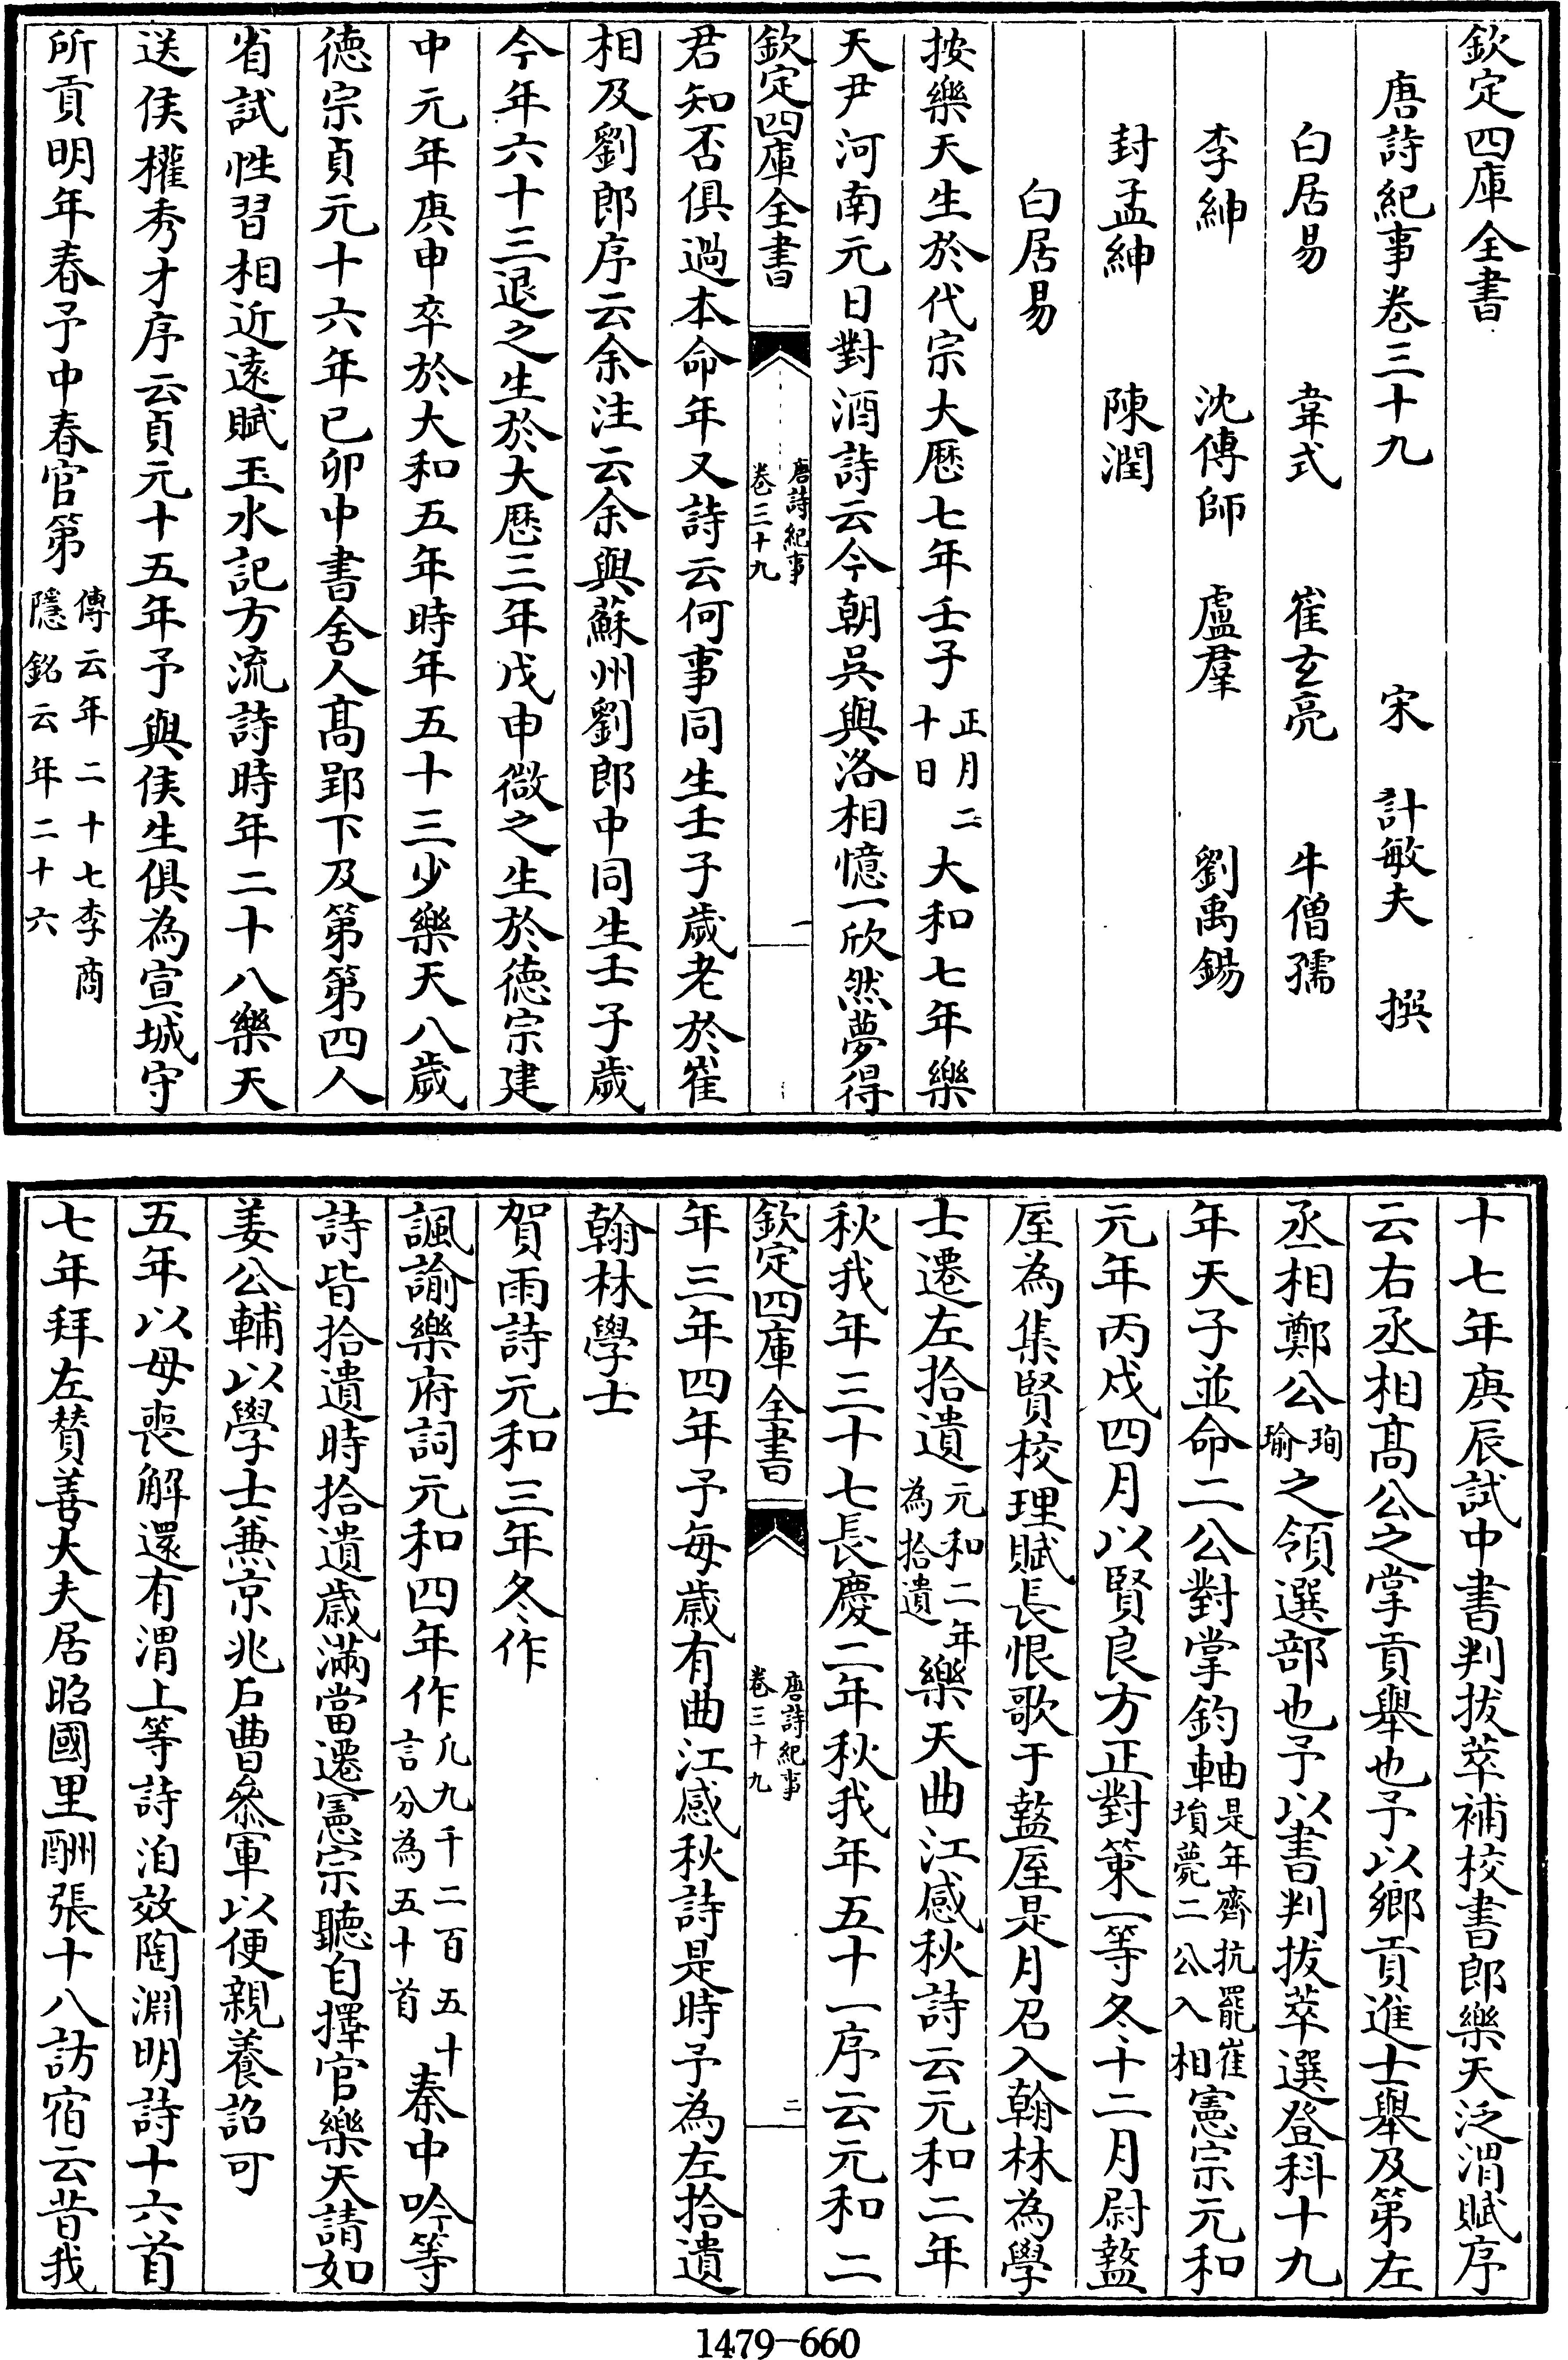 欽定四庫全書
唐詩紀事卷三十九　宋　計敏夫　撰
白居易　韋式　崔玄亮　牛僧孺
李紳　沈傳師　盧羣　劉禹錫
封孟紳　陳潤
白居易
按樂天生於代宗大厯七年壬子正月二十日大和七年樂
天尹河南元日對酒詩云今朝吳與洛相憶一欣然夢得
欽定四庫全書　唐詩紀事卷三十九　一
君知否俱過本命年又詩云何事同生壬子歲老於崔
相及劉郎序云余注云余與蘇州劉郎中同生壬子歲
今年六十三退之生於大厯三年戊申微之生於德宗建
中元年庚申卒於大和五年時年五十三少樂天八歲
德宗貞元十六年已卯中書舍人髙郢下及第第四人
省試性習相近遠賦玉水記方流詩時年二十八樂天
送侯權秀才序云貞元十五年予與侯生俱為宣城守
所貢明年春予中春官第傳云年二十七李商隱銘云年二十六
十七年庚辰試中書判拔萃補校書郎樂天泛渭賦序
云右丞相髙公之掌貢舉也予以鄉貢進士舉及第左
丞相鄭公珣瑜之領選部也予以書判拔萃選登科十九
年天子並命二公對掌鈞軸是年齊抗罷崔損薨二公入相憲宗元和
元年丙戍四月以賢良方正對策一等冬十二月尉盩
厔為集賢校理賦長恨歌于盩厔是月召入翰林為學
士遷左拾遺元和二年為拾遺樂天曲江感秋詩云元和二年
秋我年三十七長慶二年秋我年五十一序云元和二
欽定四庫全書　唐詩紀事卷三十九　二
年三年四年予每歲有曲江感秋詩是時予為左拾遺
翰林學士
賀雨詩元和三年冬作
諷諭樂府詞元和四年作凡九千二百五十言分為五十首秦中吟等
詩皆拾遺時拾遺歲滿當遷憲宗聽自擇官樂天請如
姜公輔以學士兼京兆戶曹叅軍以便親養詔可
五年以母喪解還有渭上等詩洎效陶淵明詩十六首
七年拜左贊善大夫居昭國里酬張十八訪宿云昔我
1479-660